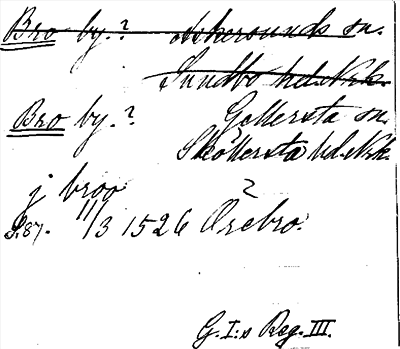 Bro by.? Askersunds sn.
Sundbo hd. Nrk.
Bro by.? Gällersta sn.
Sköllersta hd. Nrk.
j broo ?
S.87. 11/3 1526 Örebro.
G.I:s Reg. III.